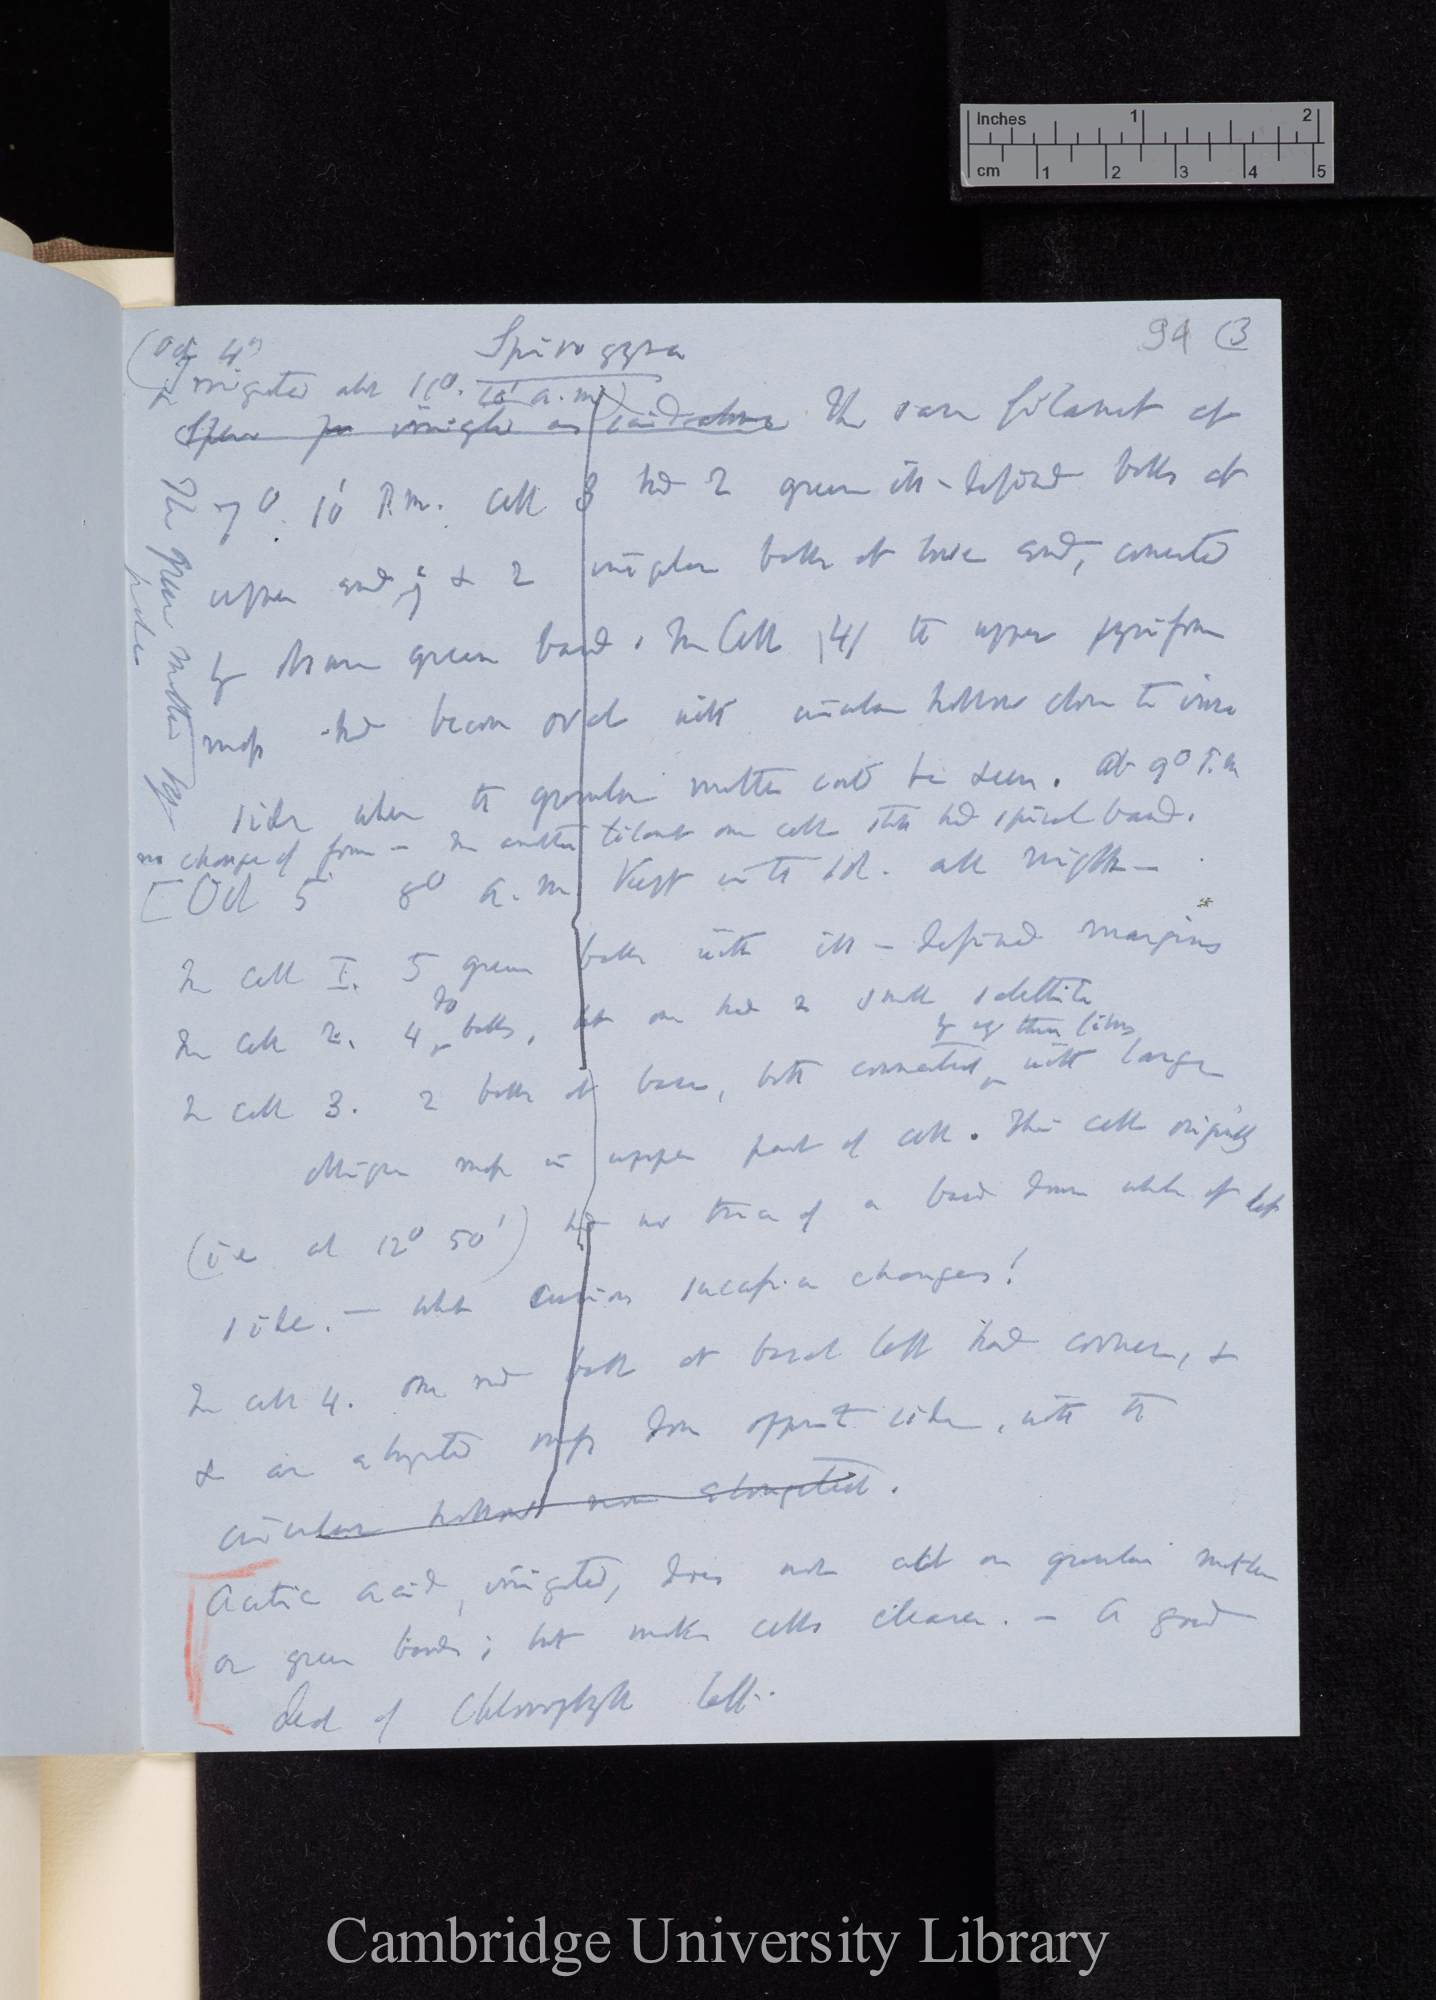 Inches 1 2
cm 1 2 3 4 5
94 (3
Spirogyra
(Oct 4th
irrigated abt 11° 10' a.m)
irrigated as said above The same filament at
7° 10' P.m. Cell 3 had 2 green ill-defined balls at
upper end, & 2 irregular balls at lower end, connected
by green band. In Cell (4) the upper pyriform
mass had become oval with circular hollow close to inner
side where the granular matter could be seen. At 9° P.m
no change of form — In another filament one cell still had spiral band.
The green matter
paler
[Oct 5 8° a.m Kept in the sol. all night —
In cell I. 5 green balls with ill-defined margins
In cell 2. 4 do balls, but one had 2 small satellite
In cell 3. 2 balls at base, both connected by thin lines with large
oblique mass in upper part of cell. This cell originally
(ie at 12° 50') had no trace of a band down whole of left
side. — What curious changes!
In cell 4. one ball at basal left hand corner, &
& an elongated mass down opposite side, with the
circular hollow now elongated.
Acetic acid, irrigated, does not act on granular matter
or green bands; but makes cells clearer. — A good
deal of Chlorophyll left.
Cambridge University Library